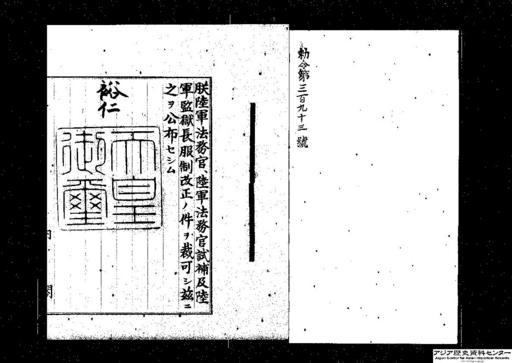 勅令第三百九十三號
朕陸軍法務官、陸軍法務官試補及陸
軍監獄長服制改正ノ件ヲ裁可シ玆ニ
之ヲ公布セシム
裕仁
天皇
御璽
アジア歴史資料センター
Japan Center for Asian Historical Records